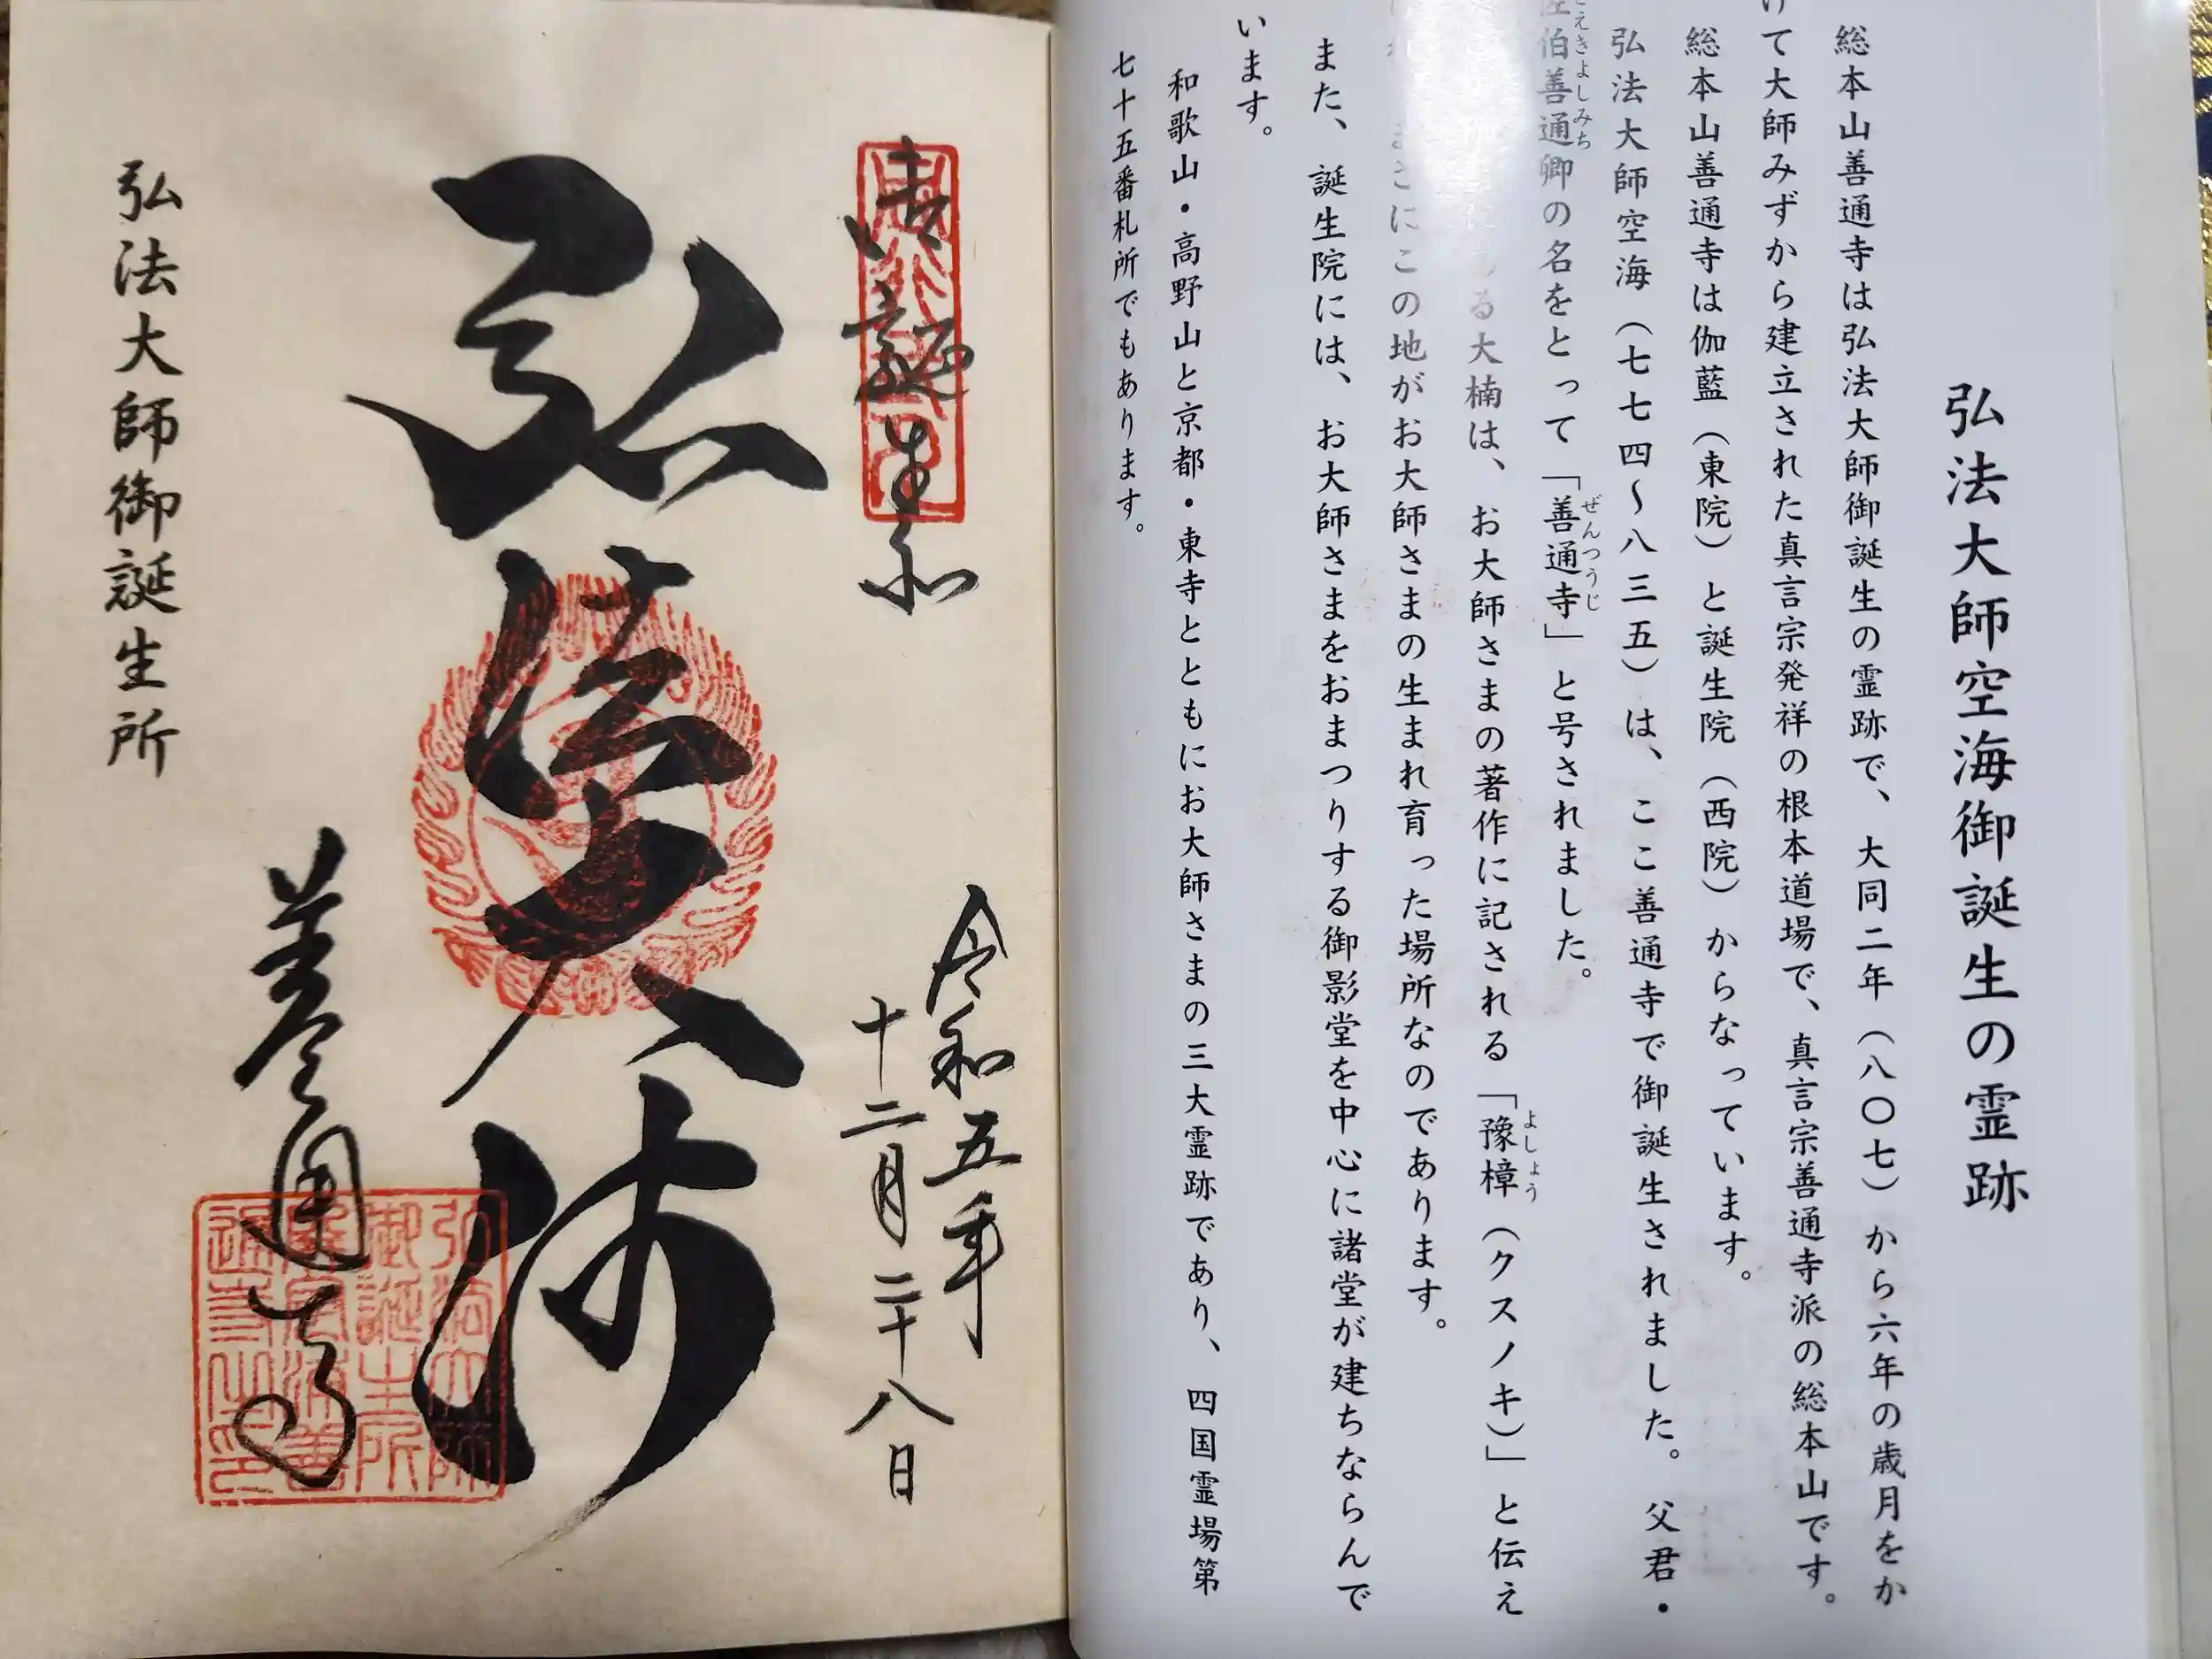 弘法大師空海御誕生の霊跡
総本山善通寺は弘法大師御誕生の霊跡で、大同二年（八〇七）から六年の歳月をか
けて大師みずから建立された真言宗発祥の根本道場で、真言宗善通寺派の総本山です。
総本山善通寺は伽藍（東院）と誕生院（西院）からなっています。
弘法大師空海（七七四〜八三五）は、ここ善通寺で御誕生されました。父君・
佐伯善通卿の名をとって「善通寺」と号されました。
ある大楠は、お大師さまの著作に記される「豫樟（クスノキ）」と伝え
まさにこの地がお大師さまの生まれ育った場所なのであります。
また、誕生院には、お大師さまをおまつりする御影堂を中心に諸堂が建ちならんで
います。
和歌山・高野山と京都・東寺とともにお大師さまの三大霊跡であり、四国霊場第
七十五番札所でもあります。
令和五年
十二月二十八日
弘法大師
善通寺
弘法大師御誕生所